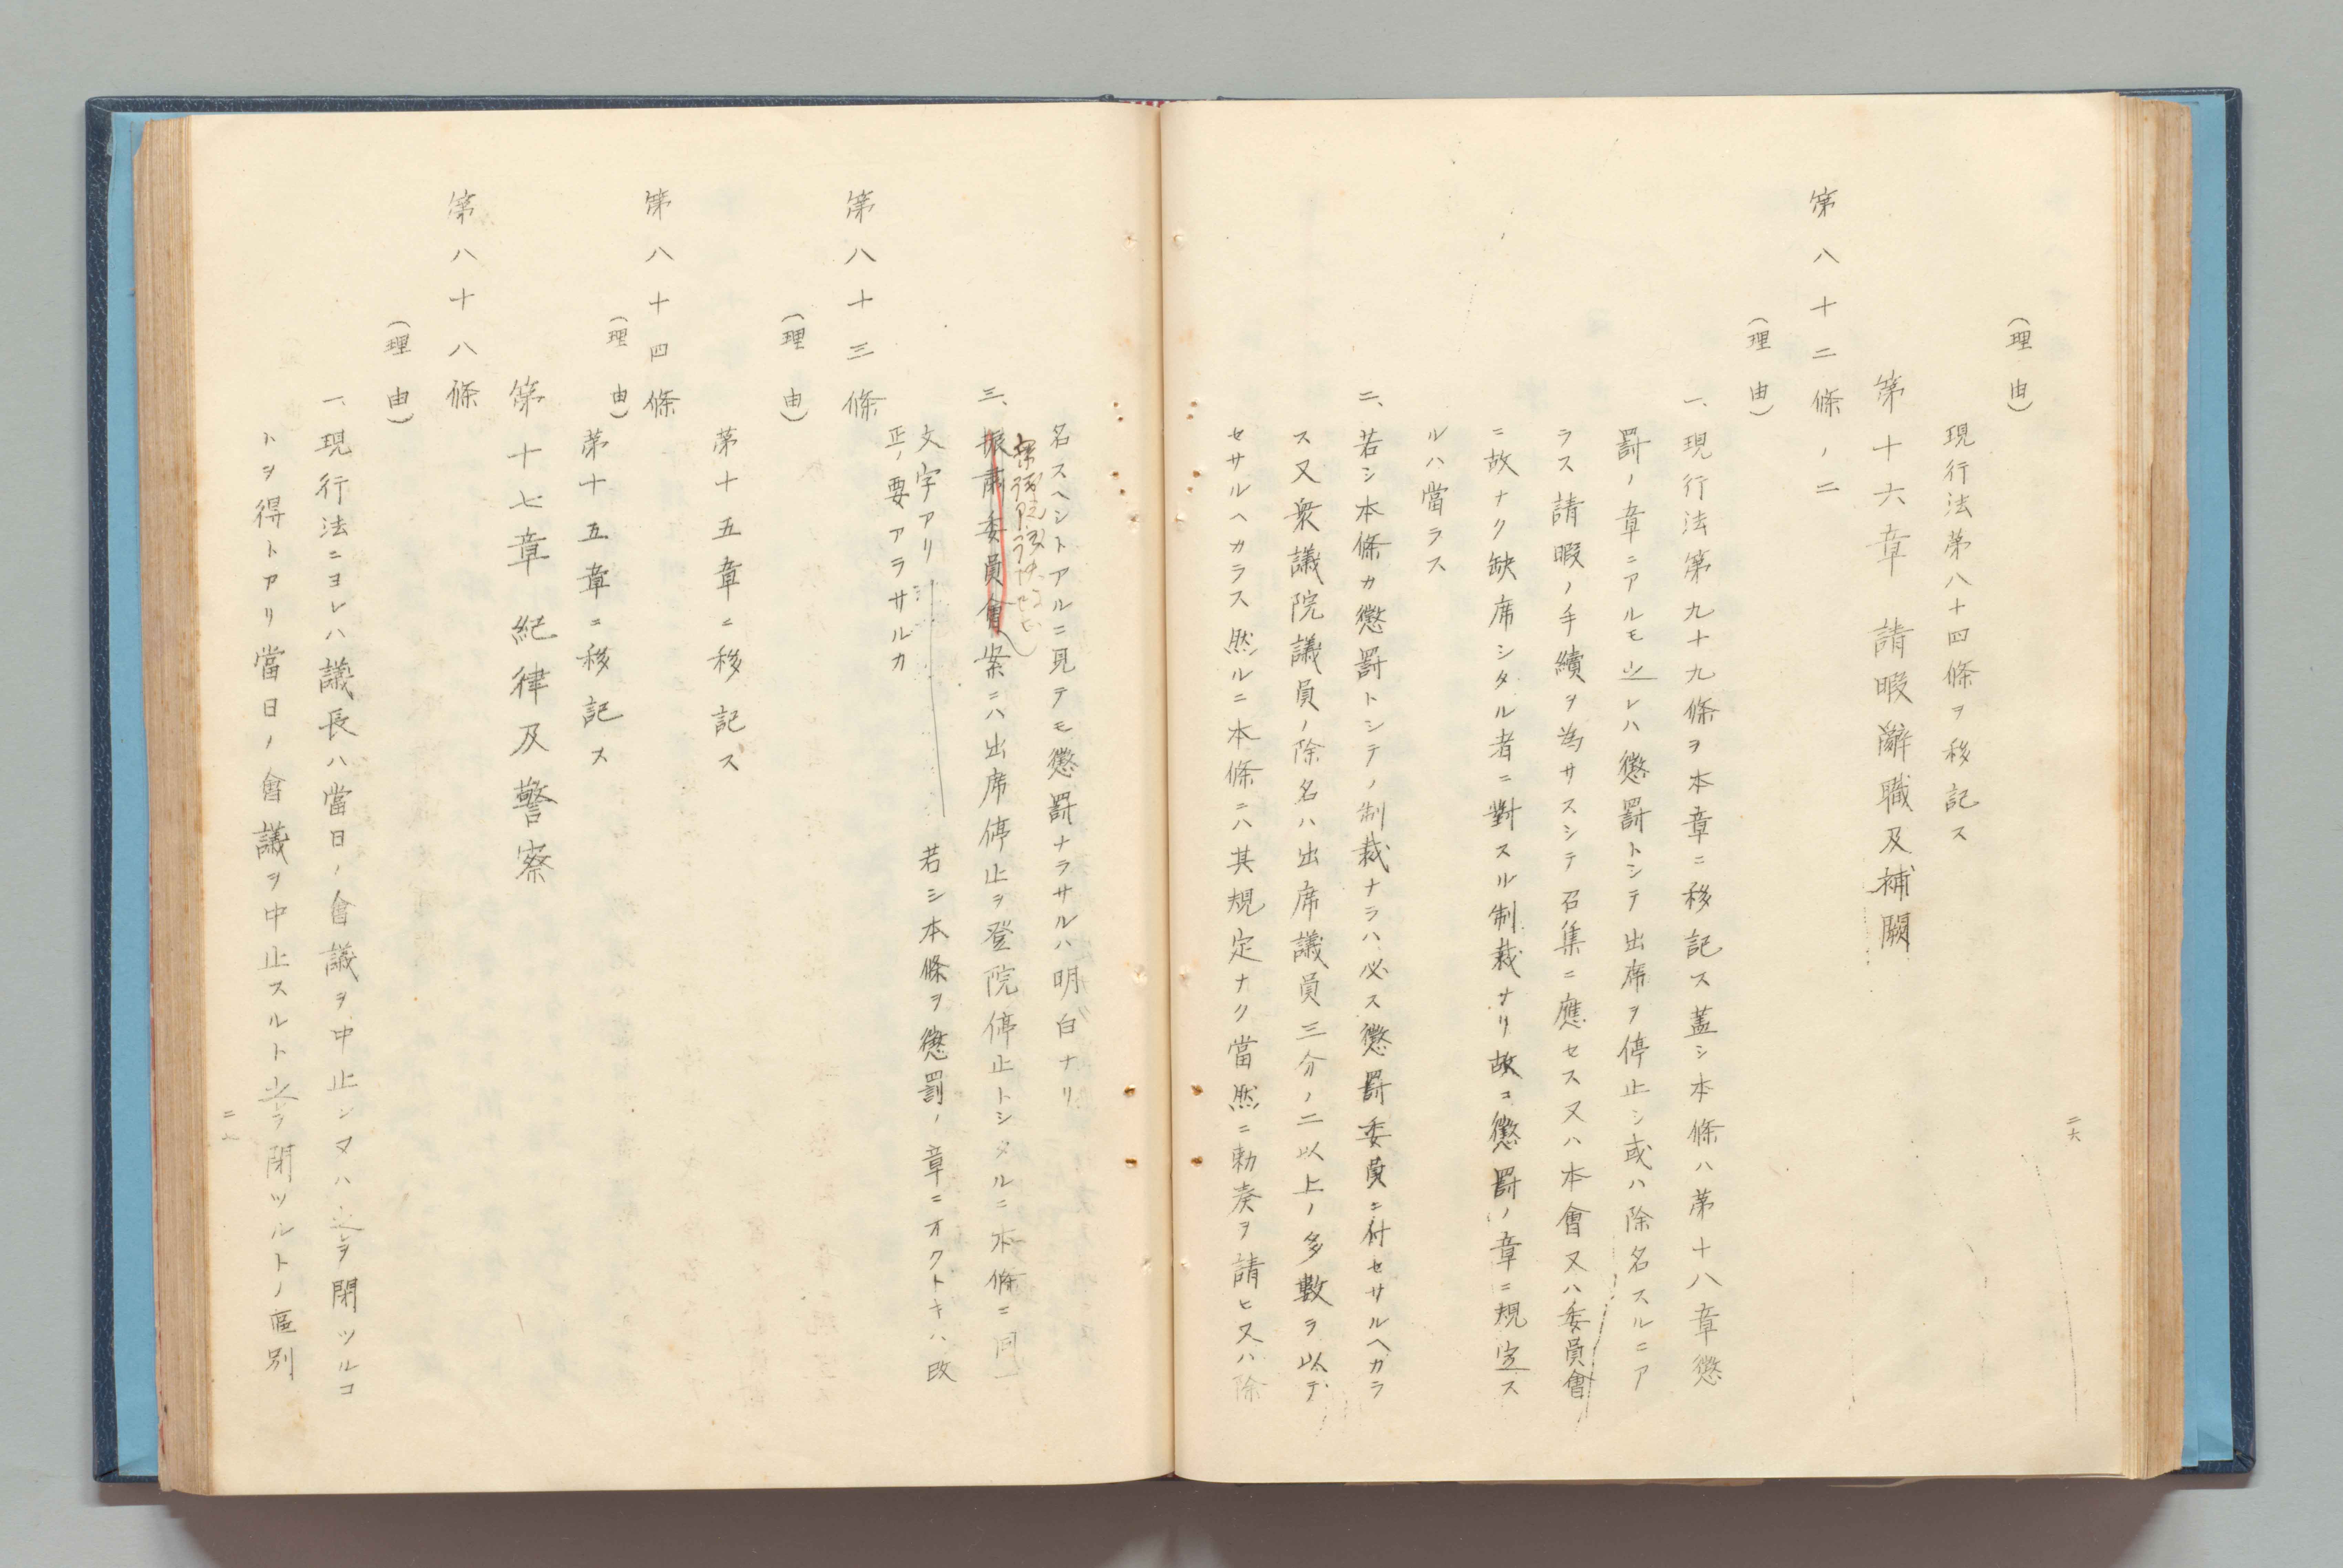 (理由)
現行法第八十四條ヲ移記ス
第十六章 請暇辭職及補闕
第八十二條ノ二
(理由)
一、現行法第九十九條ヲ本章ニ移記ス蓋シ本條ハ第十八章懲
罰ノ章ニアルモ之レハ懲罰トシテ出席ヲ停止シ或ハ除名スルニア
ラス請暇ノ手續ヲ為サスシテ召集ニ應セス又ハ本會又ハ委員會
ニ故ナク缺席シタル者ニ對スル制裁ナリ故ニ懲罰ノ章ニ規定ス
ルハ當ラス
二、若シ本條カ懲罰トシテノ制裁ナラハ必ス懲罰委員ニ付セサルヘカラ
ス又衆議院議員ノ除名ハ出席議員三分ノ二以上ノ多數ヲ以テ
セサルヘカラス然ルニ本條ニハ其規定ナク當然ニ勅奏ヲ請ヒ又ハ除
二六
名スヘシトアルニ見テモ懲罰ナラサルハ明白ナリ
三、振肅委員會案ニハ出席停止ヲ登院停止トシタルニ本條ニ同
文字アリ 若シ本條ヲ懲罰ノ章ニオクトキハ改
正ノ要アラサルカ
第八十三條
(理由)
第十五章ニ移記ス
第八十四條
(理由)
第十五章ニ移記ス
第十七章 紀律及警察
第八十八條
(理由)
一、現行法ニヨレハ議長ハ當日ノ會議ヲ中止シ又ハ之ヲ閉ツルコ
トヲ得トアリ當日ノ會議ヲ中止スルト之ヲ閉ツルトノ區別